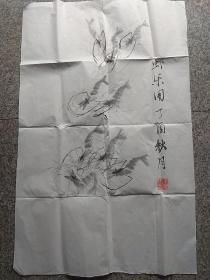 虾乐图丁酉秋月